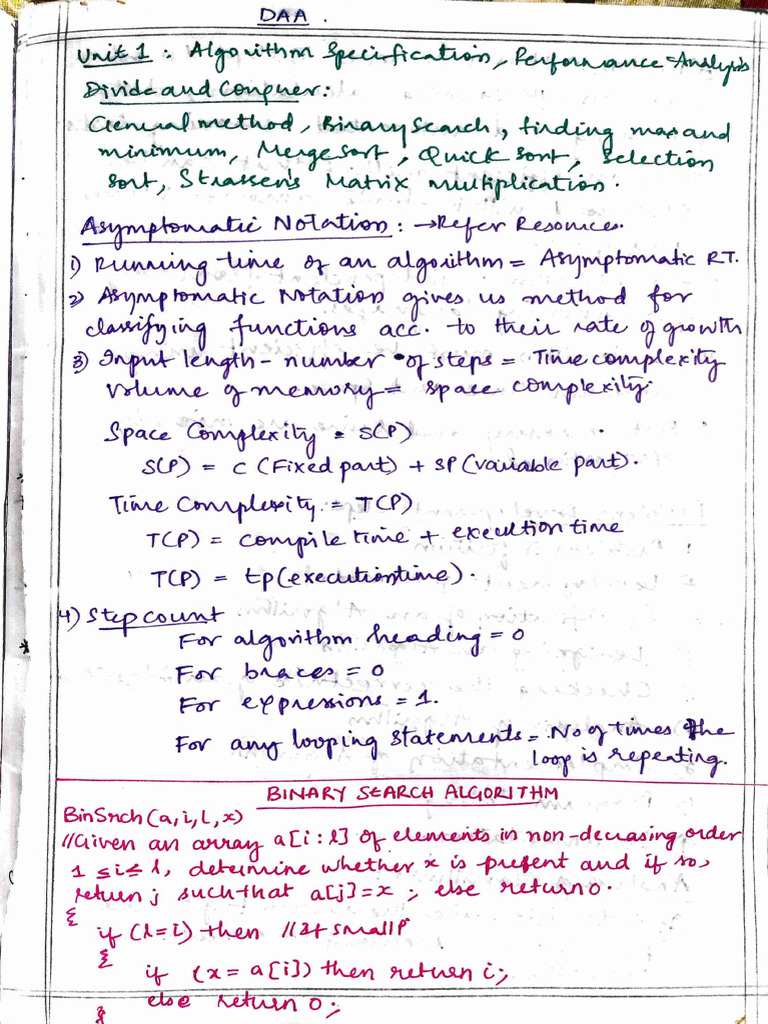 DAA.
Unit 1 : Algorithm Specification, Performance Analysis
Divide and Conquer:
General method, Binary Search, finding max and
minimum, Merge sort, Quick sort, Selection
sort, Strassen's Matrix multiplication.
Asymptomatic Notation: → Refer Resources.
1) Running time of an algorithm = Asymptomatic R.T.
2) Asymptomatic Notation gives us method for
classifying functions acc. to their rate of growth
3) Input length - number of steps = Time complexity
volume of memory = space complexity.
Space Complexity = S(P)
S(P) = C (Fixed part) + SP (variable part).
Time Complexity = T(P)
T(P) = compile time + execution time
T(P) = tp (execution time).
4) Step count
For algorithm heading = 0
For braces = 0
For expressions = 1.
For any looping statements = No of times the
loop is repeating.
BINARY SEARCH ALGORITHM
BinSrch (a, i, l, x)
// Given an array a[i : l] of elements in non-decrasing order
1 ≤ i ≤ l, determine whether x is present and if so,
return j such that a[j] = x ; else return 0.
{
if (l = i) then // If small P
{
if (x = a[i]) then return i;
else return 0;
}